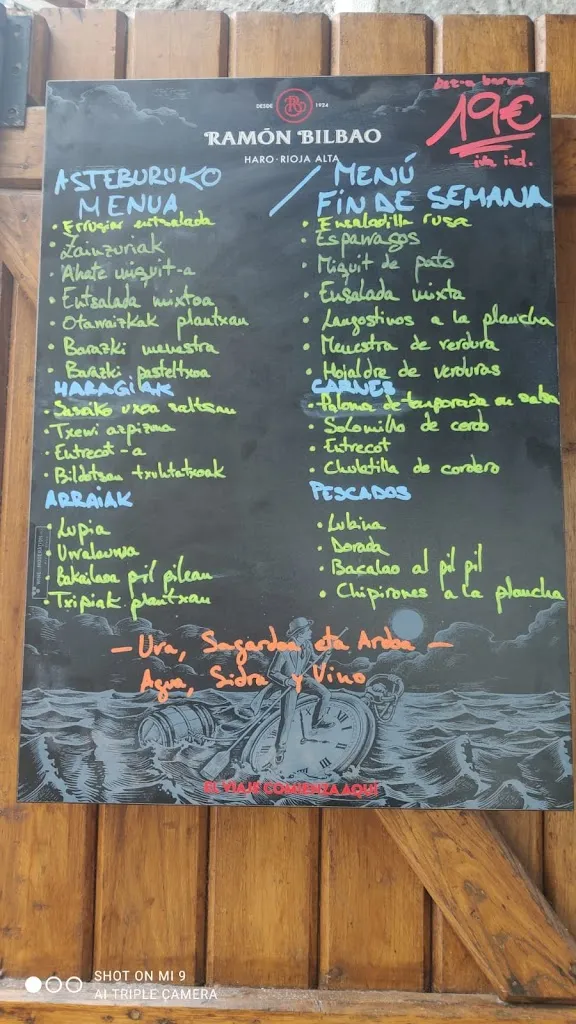 DESDE 1924
RAMÓN BILBAO
HARO·RIOJA ALTA
19€
iva incl.
ASTEBURUKO
MENUA
· Errusiar entsalada
· Zainzuriak
· Ahate miquit-a
· Entsalada mixtoa
· Otarraizkak plantxan
· Barazki menestra
· Barazki pasteltxoa
HARAGIAK
· Sasoiko uxoa saltsan
· Txerri azpizuna
· Entrecot-a
· Bildotsan txuletatxoak
ARRAIAK
· Lupia
· Urraburua
· Bakailaoa pil pilean
· Txipiak plantxan
/ MENÚ
FIN DE SEMANA
· Ensaladilla rusa
· Esparragos
· Miquit de pato
· Ensalada mixta
· Langostinos a la plancha
· Menestra de verdura
· Hojaldre de verduras
CARNES
· Paloma de temporada en salsa
· Solomillo de cerdo
· Entrecot
· Chuletilla de cordero
PESCADOS
· Lubina
· Dorada
· Bacalao al pil pil
· Chipirones a la plancha
— Ura, Sagardoa eta Ardoa —
Agua, Sidra y Vino
EL VIAJE COMIENZA AQUÍ
SHOT ON MI 9
AI TRIPLE CAMERA